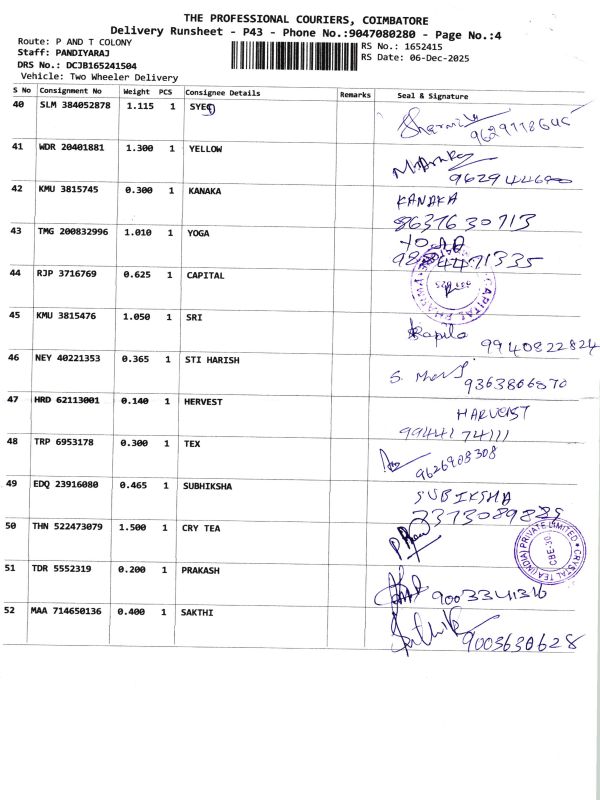 THE PROFESSIONAL COURIERS, COIMBATORE
Delivery Runsheet - P43 - Phone No.:9047080280 - Page No.:4
Route: P AND T COLONY
RS No.: 1652415
Staff: PANDIYARAJ
RS Date: 06-Dec-2025
DRS No.: DCJB165241504
Vehicle: Two Wheeler Delivery
S No Consignment No Weight PCS Consignee Details Remarks Seal & Signature
40 SLM 384052878 1.115 1 SYED
41 WDR 20401881 1.300 1 YELLOW
42 KMU 3815745 0.300 1 KANAKA KANAKA
8637630713
43 TMG 200832996 1.010 1 YOGA
44 RJP 3716769 0.625 1 CAPITAL
45 KMU 3815476 1.050 1 SRI Kapila 9940822824
46 NEY 40221353 0.365 1 STI HARISH 9363806070
47 HRD 62113001 0.140 1 HERVEST HARVEST
9944174111
48 TRP 6953178 0.300 1 TEX 9626908308
49 EDQ 23916080 0.465 1 SUBHIKSHA SUBIKSHA
50 THN 522473079 1.500 1 CRY TEA
CRYSTAL TEA (INDIA) PRIVATE LIMITED
CBE-30.
51 TDR 5552319 0.200 1 PRAKASH 9003341316
52 MAA 714650136 0.400 1 SAKTHI 9003630628